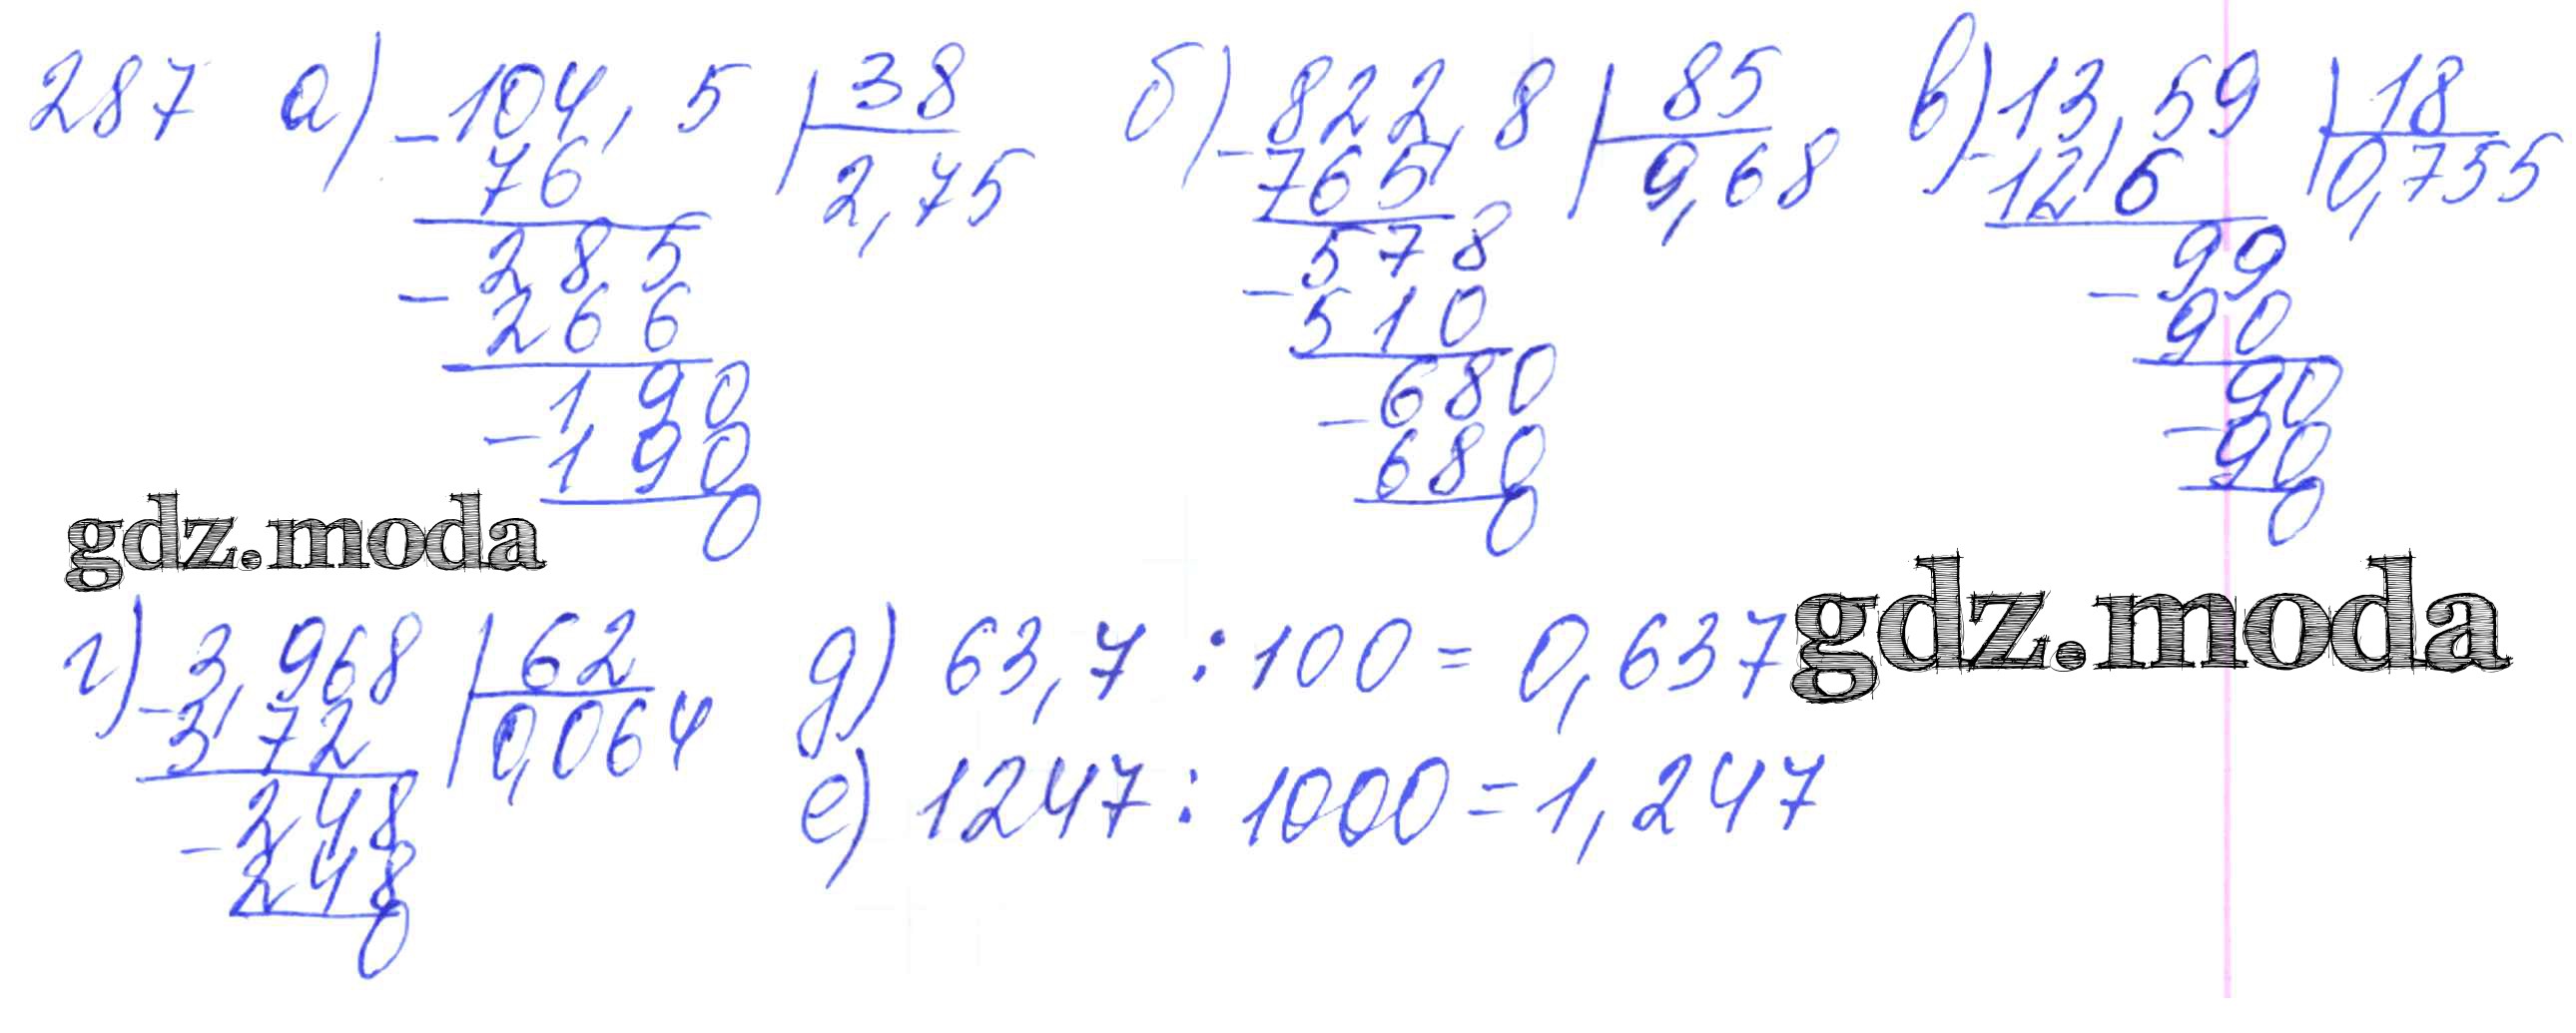 287 а) -104,5 | 38
76 | 2,75
-285
266
-190
190
0
б) -822,8 | 85
765 | 9,68
-578
510
-680
680
0
в) -13,59 | 18
12,6 | 0,755
-99
90
-90
90
0
gdz.moda
gdz.moda
г) -3,968 | 62
3,72 | 0,064
-248
248
0
д) 63,7 : 100 = 0,637
е) 1247 : 1000 = 1,247